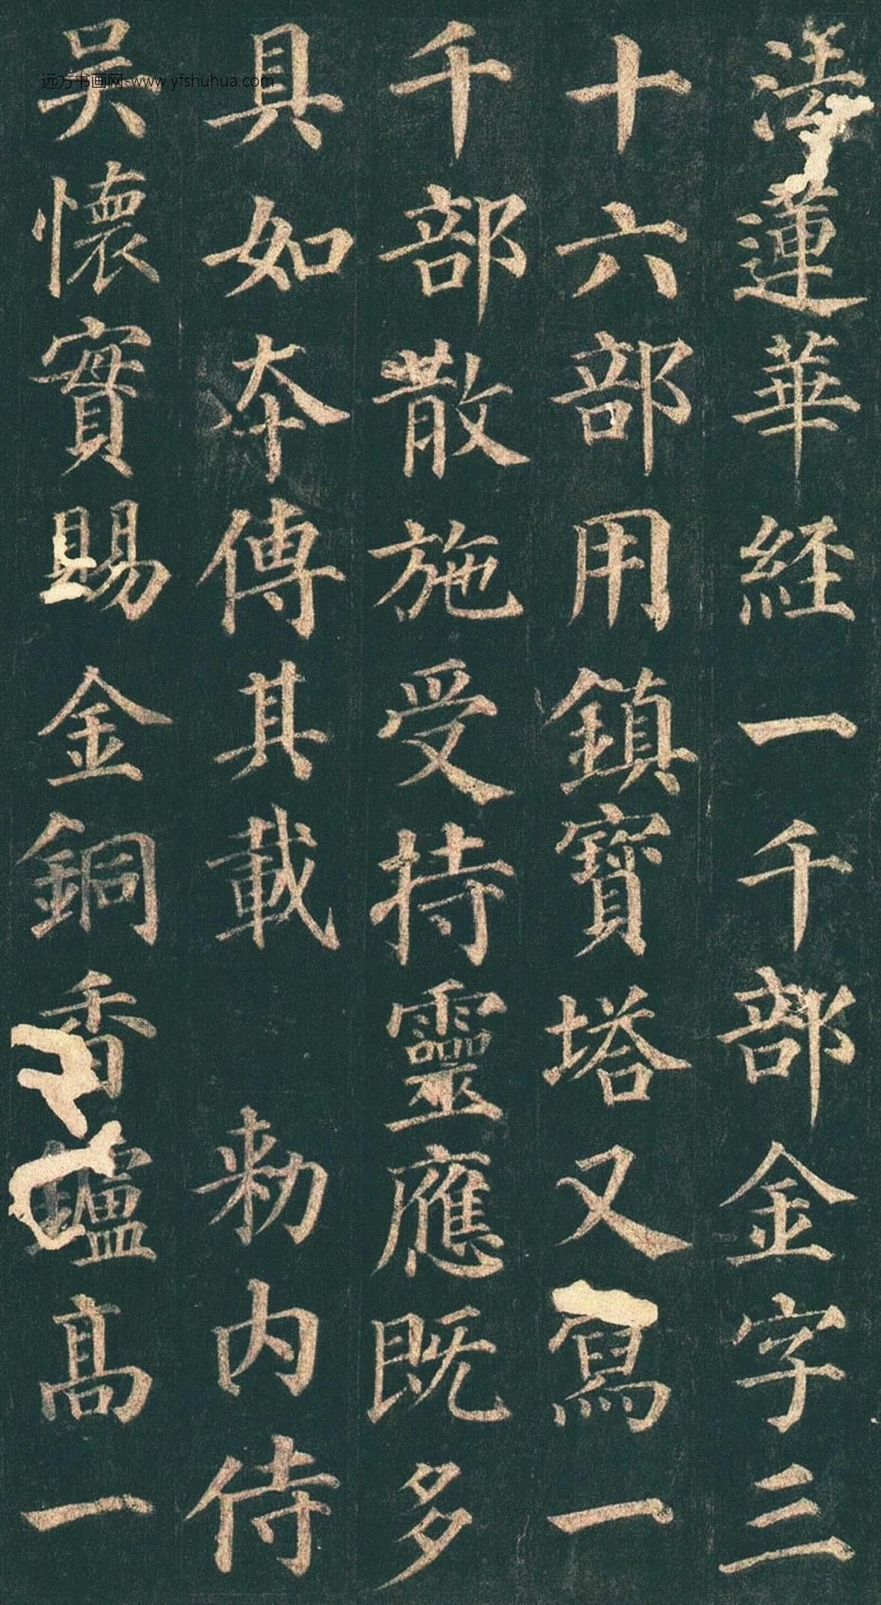 法蓮華經一千部金字三
十六部用鎮寶塔又寫一
千部散施受持靈應既多
具如夲傳其載 敕内侍
吳懷實賜金銅香鑪高一
远方书画网-www.yfshuhua.com